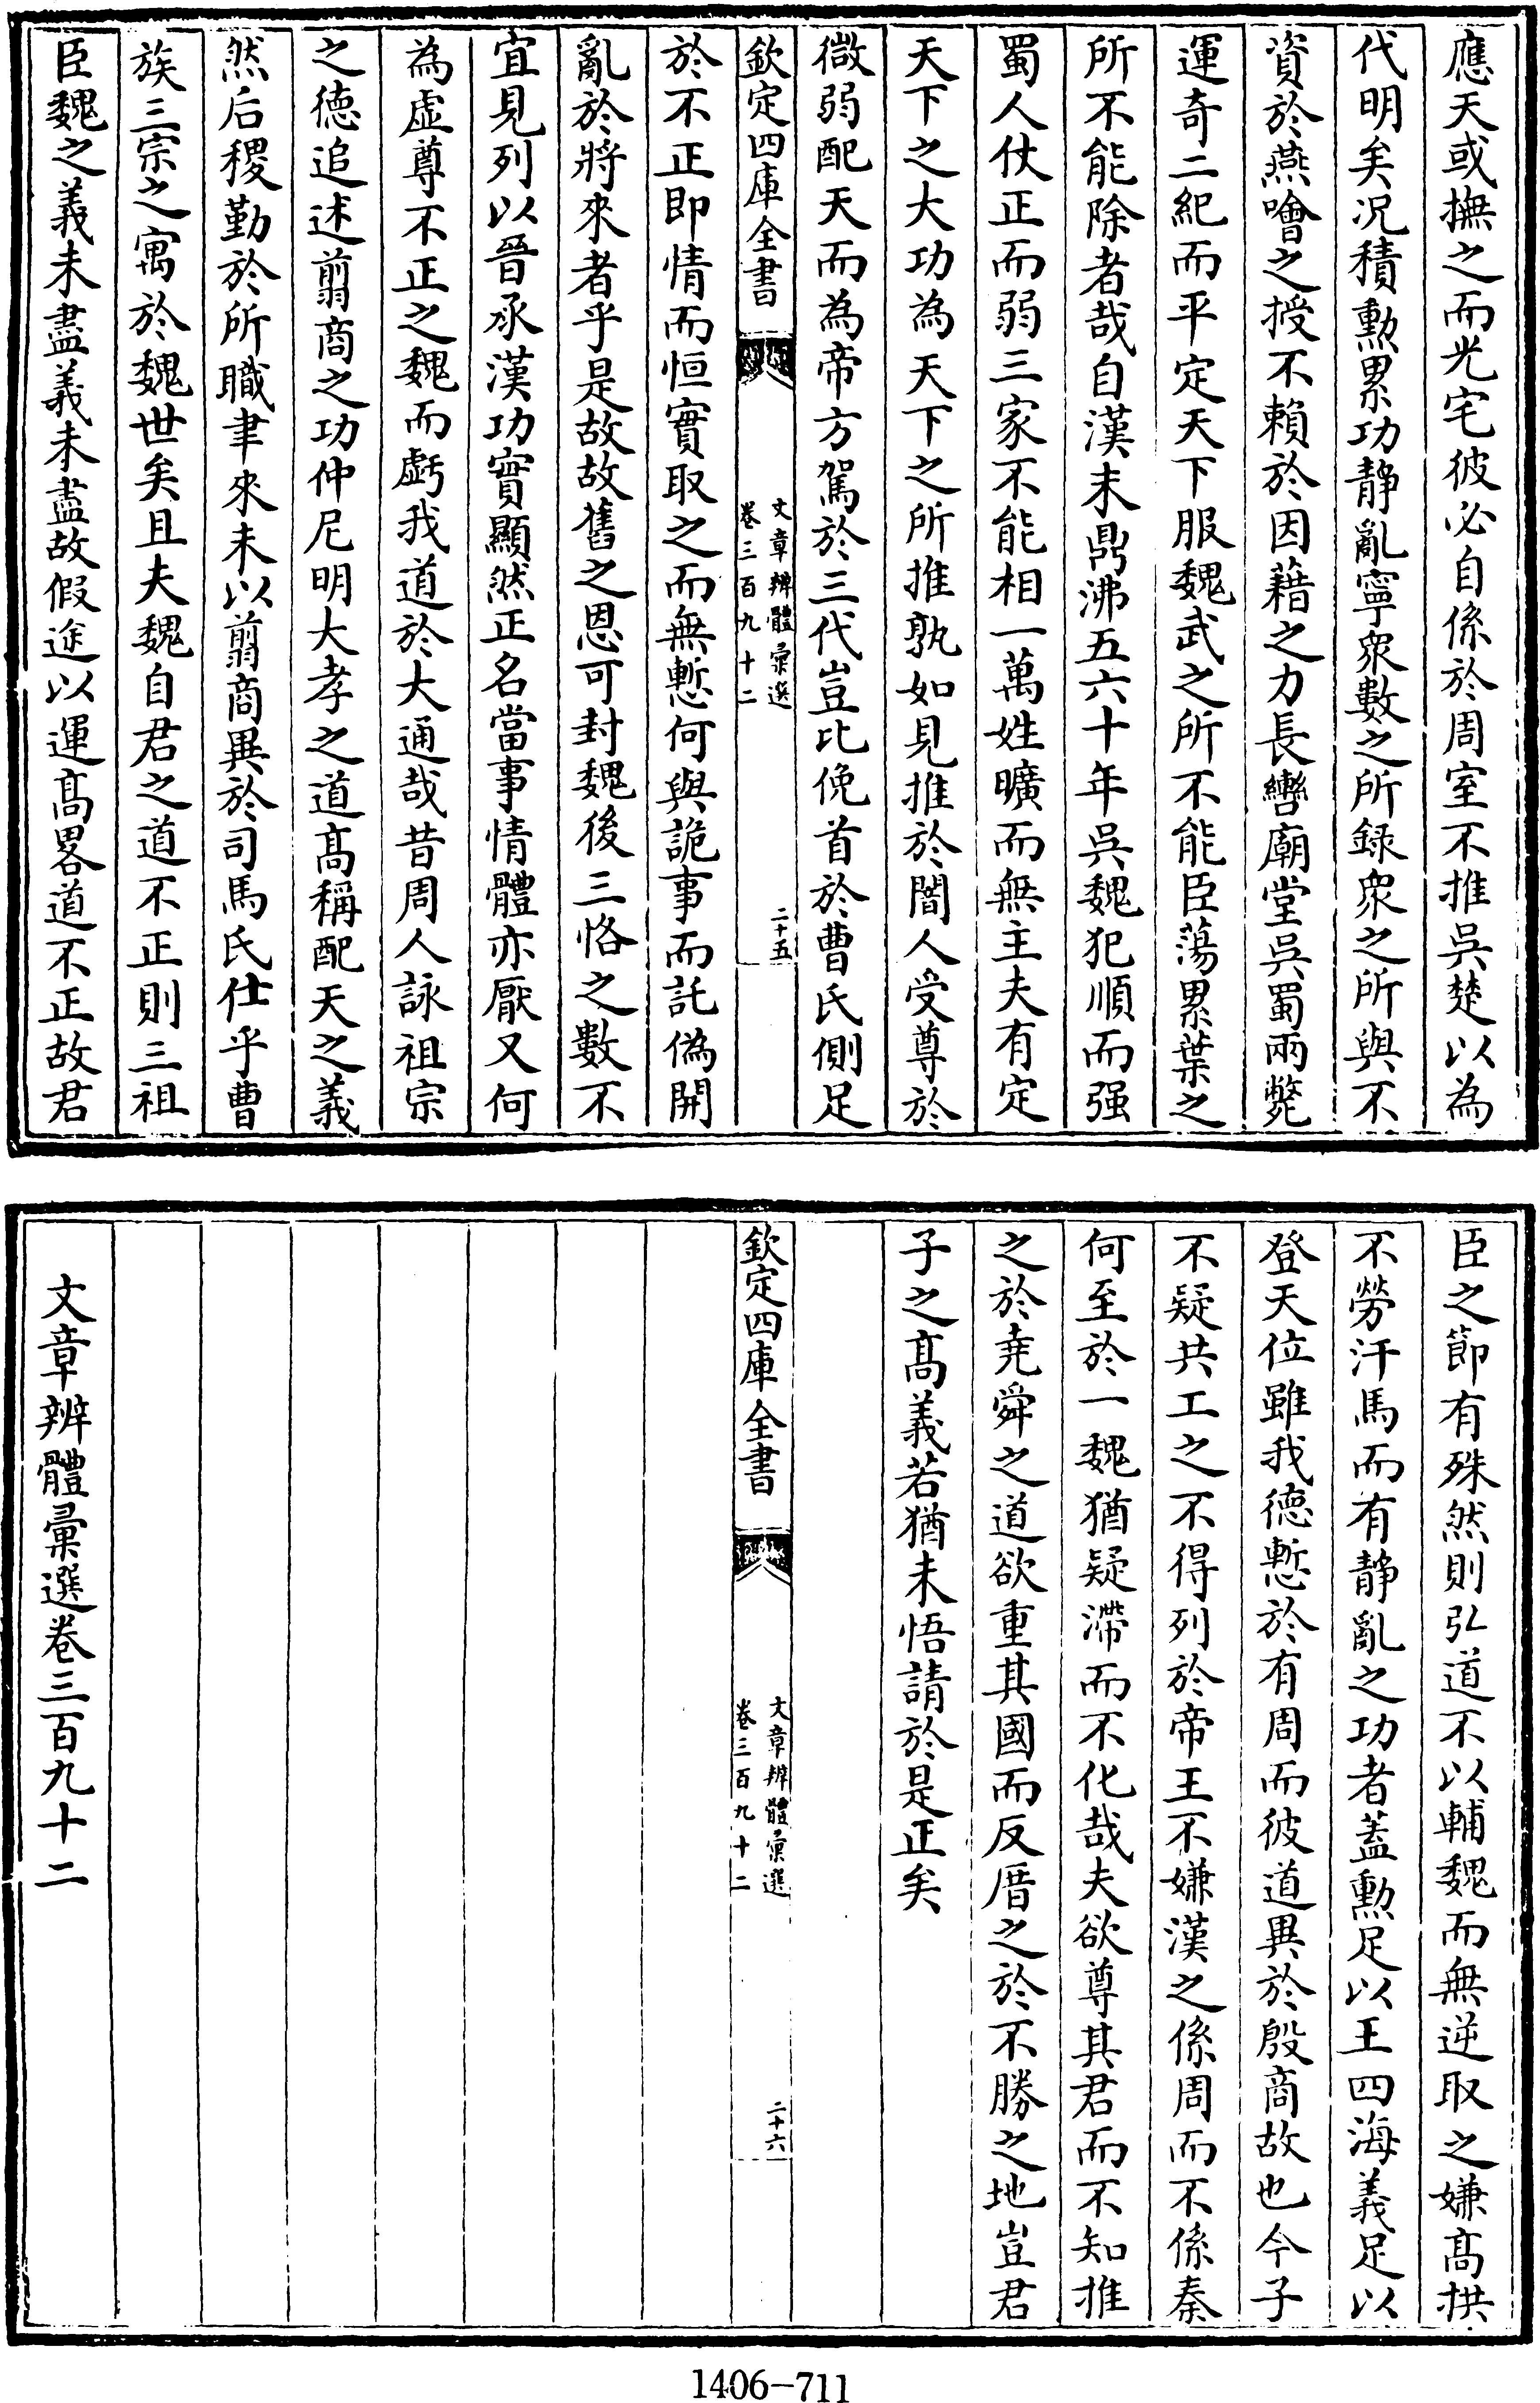 應天或撫之而光宅彼必自係於周室不推吳楚以為
代明矣况積勲累功静亂寧衆數之所録衆之所與不
資於燕噲之授不賴於因藉之力長轡廟堂吳蜀兩斃
運奇二紀而平定天下服魏武之所不能臣蕩累葉之
所不能除者哉自漢末鼎沸五六十年吳魏犯順而强
蜀人仗正而弱三家不能相一萬姓曠而無主夫有定
天下之大功為天下之所推孰如見推於闇人受尊於
微弱配天而為帝方駕於三代豈比俛首於曹氏側足
欽定四庫全書
文章辨體彙選
卷三百九十二
二十五
於不正即情而恒實取之而無慙何與詭事而託偽開
亂於將來者乎是故故舊之恩可封魏後三恪之數不
宜見列以晉承漢功實顯然正名當事情體亦厭又何
為虛尊不正之魏而虧我道於大通哉昔周人詠祖宗
之德追述翦商之功仲尼明大孝之道髙稱配天之義
然后稷勤於所職聿來未以翦商異於司馬氏仕乎曹
族三宗之寓於魏世矣且夫魏自君之道不正則三祖
臣魏之義未盡義未盡故假途以運髙畧道不正故君
臣之節有殊然則弘道不以輔魏而無逆取之嫌髙拱
不勞汗馬而有静亂之功者蓋勲足以王四海義足以
登天位雖我德慙於有周而彼道異於殷商故也今子
不疑共工之不得列於帝王不嫌漢之係周而不係秦
何至於一魏猶疑滯而不化哉夫欲尊其君而不知推
之於堯舜之道欲重其國而反厝之於不勝之地豈君
子之髙義若猶未悟請於是正矣
欽定四庫全書
文章辨體彙選
卷三百九十二
二十六
文章辨體彙選卷三百九十二
1406-711